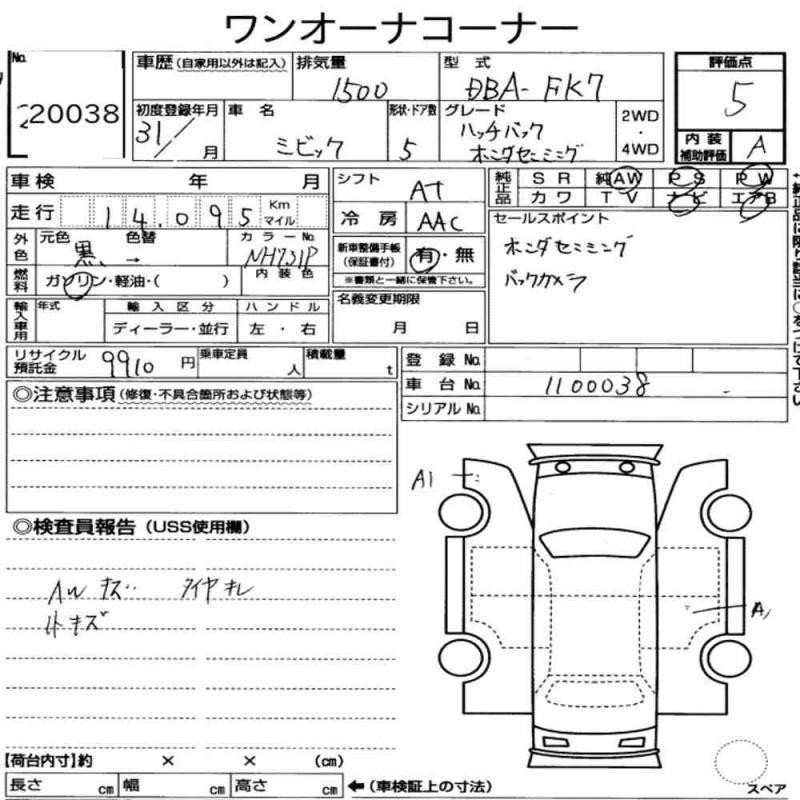 ワンオーナーコーナー
No.
20038
車歴 (自家用以外は記入)
排気量
1500
型 式
DBA-FK7
評価点
5
初度登録年月
31/ 月
車 名
シビック
形状・ドア数
5
グレード
ハッチバック
ホンダセンシング
2WD
・
4WD
内 装
補助評価
A
車 検 年 月
走 行
14.095
Km
マイル
外色
元色
黒
色替
→
カラーNo.
NH731P
燃料
ガソリン・軽油・( )
内 装 色
輸入車用
年式
輸 入 区 分
ディーラー・並行
ハ ン ド ル
左 ・ 右
シフト
AT
冷 房
AAC
新車整備手帳
(保証書付)
有・無
※書類と一緒に保管下さい。
名義変更期限
月 日
純正品
S R
純AW
P S
P W
カ ワ
T V
ナ ビ
エアB
セールスポイント
ホンダセンシング
バックカメラ
リサイクル
預託金
9910 円
乗車定員
人
積載量
t
登 録 No.
車 台 No.
1100038
シリアル No.
◎注意事項 (修復・不具合箇所および状態等)
◎検査員報告 (USS使用欄)
AWキズ タイヤキレ
キズ
A1
A1
【荷台内寸】約 × × (cm)
長さ cm
幅 cm
高さ cm
←(車検証上の寸法)
スペア